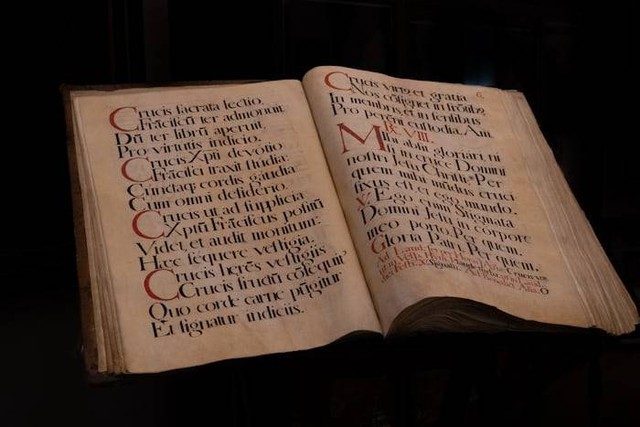 Crucis sacrata lectio,
Frāciscū ter admonuit
Dū ter librū aperuit,
Pro virtutis indicio.
Crucis Xpti devotio
Frācisci traxit studia:
Cunctaq; cordis gaudia
Cum omni desiderio.
Crucis ut ad supplicia
Xptm Frāciscus positū
Videt, et audit monitum:
Hæc sequere vestigia.
Crucis herēs vestigijs
Crucis fructū cōsequir
Quo corde carne pūgitur
Et signatur indicijs.
Crucis virtꝰ et gratia
Nos cōsignet in frōtibꝫ
In membris, et in sensibus
Pro perēni custodia. Am.
R. VIII.
Mihi absit gloriari, ni
si in cruce Domini
nostri Jesu Christi: * Per
quem mihi mūdus cruci
fixus est et ego mundo.
℣. Ego enim Stigmata
Domini Jesu in corpore
meo porto Per quem.
Gloria Patri Per quem.